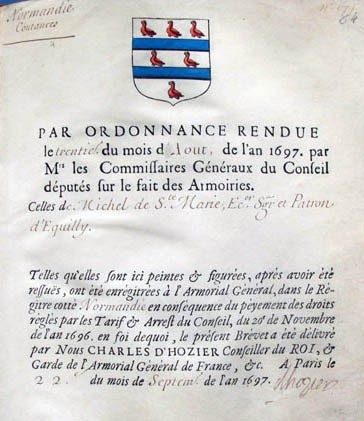 Normandie
Coutances
PAR ORDONNANCE RENDUE
le trentieſ. du mois d'Aout, de l'an 1697. par
Mrs les Commiſſaires Généraux du Conſeil
députés ſur le fait des Armoiries.
Celles de Michel de Ste. Marie, Ecer. Sgr. et Patron
d'Equilly.
Telles qu'elles ſont ici peintes & figurées, après avoir été
reſſuës, ont été enrégitrées à l'Armorial Général, dans le Ré-
gitre cotté Normandie en conſequence du payement des droits
reglés par les Tarif & Arreſt du Conſeil, du 20e de Novembre
de l'an 1696. en foi dequoi, le préſent Brevet a été délivré
par Nous CHARLES D'HOZIER Conſeiller du ROI, &
Garde de l'Armorial Général de France, &c. A Paris le
22. du mois de Septemb. de l'an 1697. d'hozier